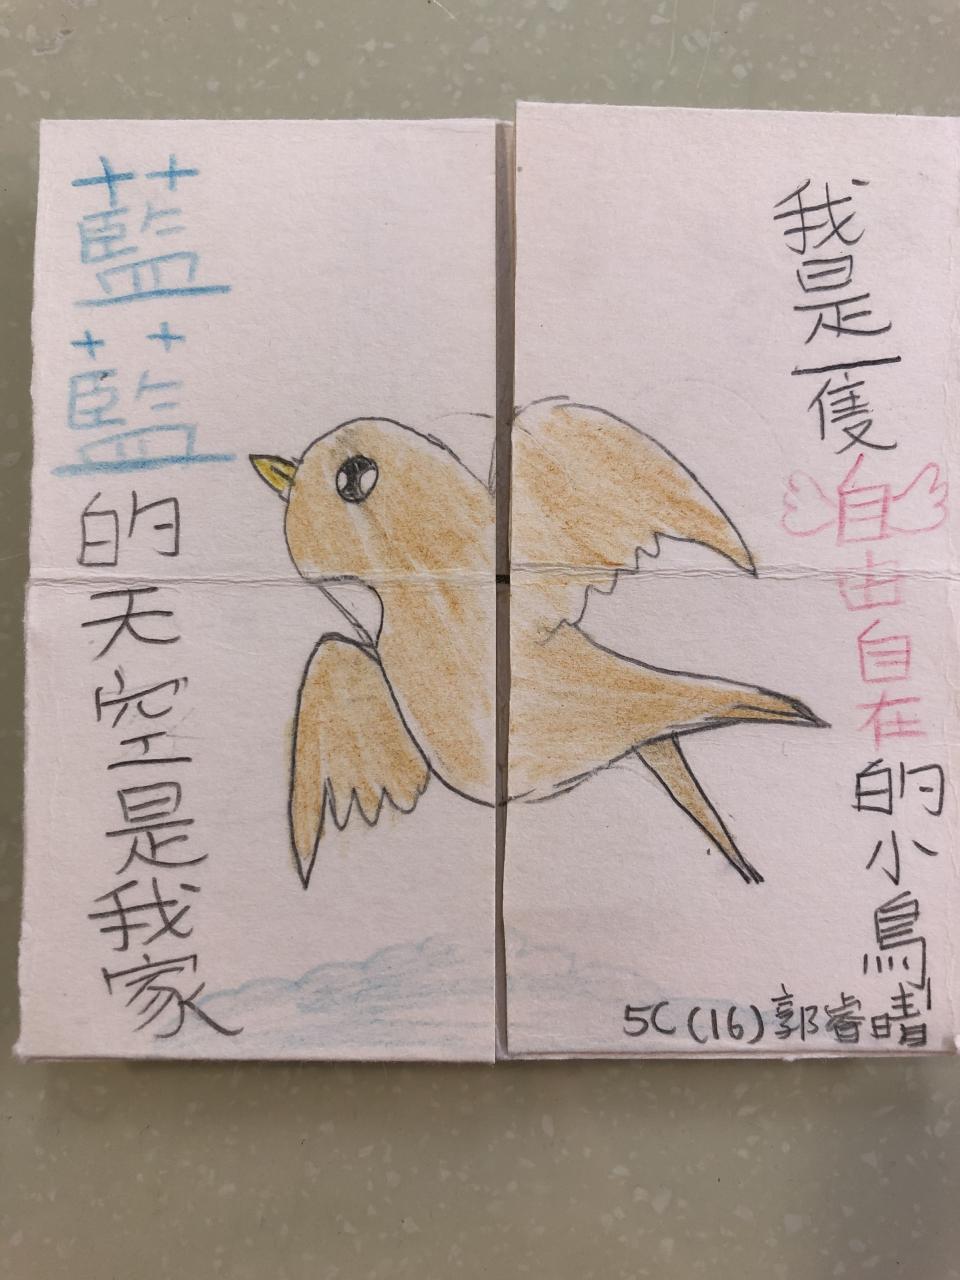 我是一隻自由自在的小鳥
藍藍的天空是我家
5C (16) 郭睿晴